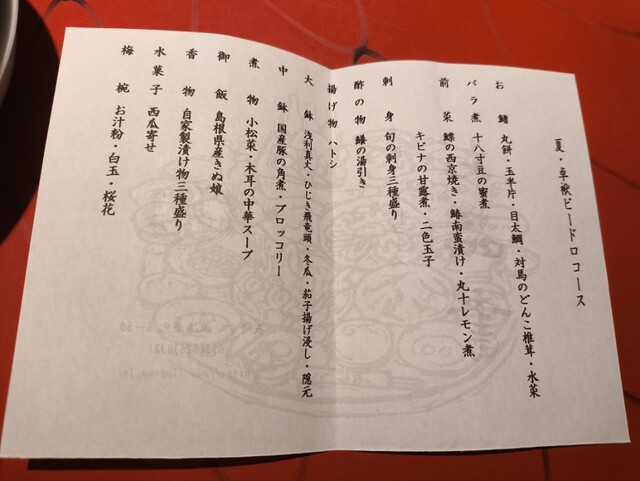 夏・卓袱ビードロコース
お鰭 丸餅・玉半片・目太鯛・対馬のどんこ椎茸・水菜
バラ煮 十八寸豆の蜜煮
前菜 鰈の西京焼き・鯵南蛮漬け・丸十レモン煮
キビナの甘露煮・二色玉子
刺身 旬の刺身三種盛り
酢の物 鱧の湯引き
揚げ物 ハトシ
大鉢 浅利真丈・ひじき飛竜頭・冬瓜・茄子揚げ浸し・隠元
中鉢 国産豚の角煮・ブロッコリー
煮物 小松菜・木耳の中華スープ
御飯 島根県産きぬ娘
香物 自家製漬け物三種盛り
水菓子 西瓜寄せ
梅椀 お汁粉・白玉・桜花